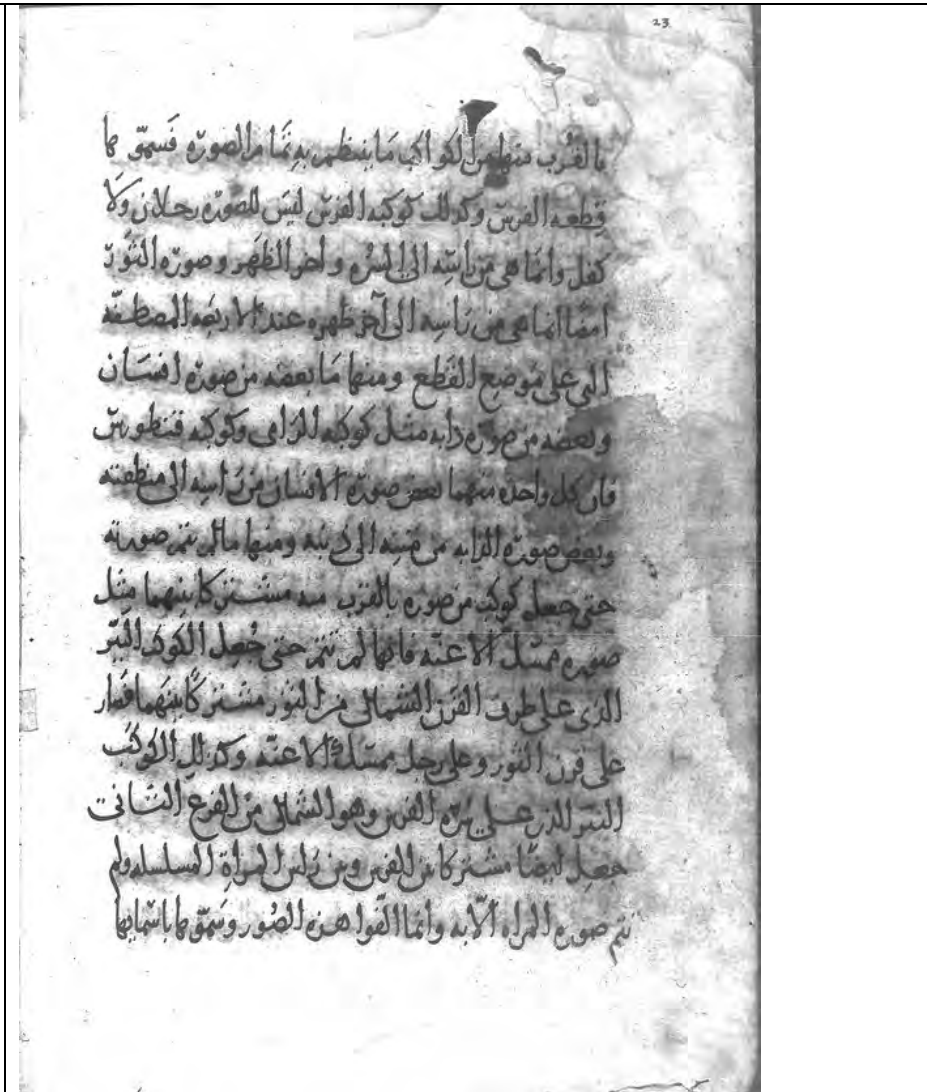 23
بالقرب منها من الكواكب ما ينتظم به تمام الصورة فسموها
قطعه الفرس وكذلك كوكبه الفرس ليس للصوره رجلان ولا
كفل وانما هي من راسه الى السره واخر الظهر وصوره الثور
ايضا انما هي من راسه الى آخر ظهره عند الاربعه المصطفه
التي على موضع القطع ومنها ما بعضه من صوره انسان
وبعضه من صوره دابه مثل كوكبه الرامى وكوكبه قنطورس
فان كل واحده منهما بعض صوره الانسان من راسه الى منطقته
وبعض صوره الدابه من الى ذنبه ومنها ما لم تتم صورته
حتى جعل كوكب من صوره بالقرب منه مشتركا بينهما مثل
صوره ممسك الاعنه فانها لم تتم حتى جعل الكوكب النير
الذى على طرف القرن الشمالى من الثور مشتركا بينهما فصار
على قرن الثور وعلى رجل ممسك الاعنه وكذلك الكوكب
النير الذى على سره الفرس وهو الشمالى من الفرغ الثانى
جعل ايضا مشتركا بين الفرس وبين راس المرأة المسلسله ولم
تتم صوره المراه الا به وانما الفوا هذه الصور وسموها باسمايها